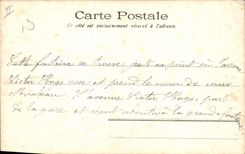 Carte Postale
Ce côté est exclusivement réservé à l'adresse.
Cette fontaine se trouve juste au point où l'avenue
Victor Hugo et prend le nom de cours
Mirabeau. L'avenue Victor Hugo, part
de la gare et vient aboutir à la grande